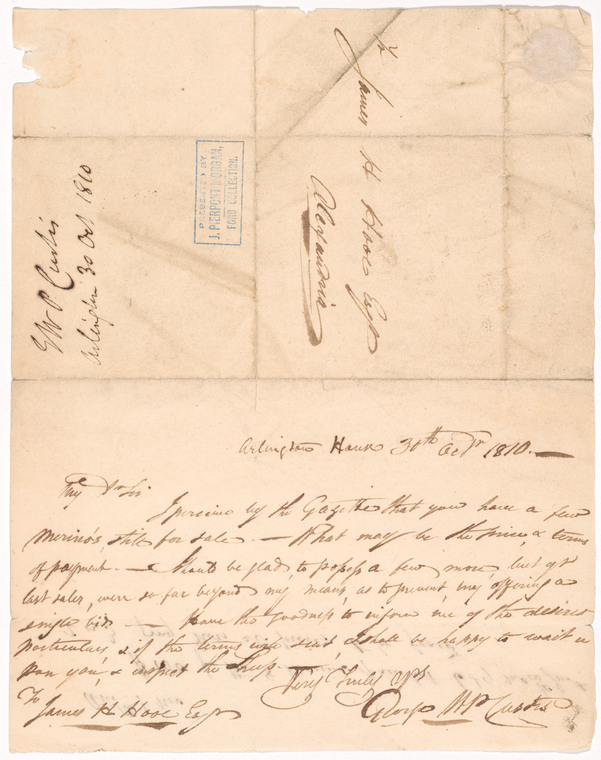 To
James H Hooe Esqr
Alexandria
PRESENTED BY
J. PIERPONT MORGAN,
FORD COLLECTION.
GW P Custis
Arlington 30 Oct 1810
Arlington House 30th Octr 1810. —
My Dr Sir
I perceive by the Gazette that you have a few
Merino's still for sale. — What may be the price & terms
of payment. — Shoud be glad to possess a few more but yr
last sales, were so far beyond my means, as to prevent my offering a
single bid — have the goodness, to inform me of the desired
particulars & if the terms will suit I shall be happy to wait u
pon you & inspect the Sheep. —
Very Truly Yrs
George WP Custis
To
James H Hooe Esqr